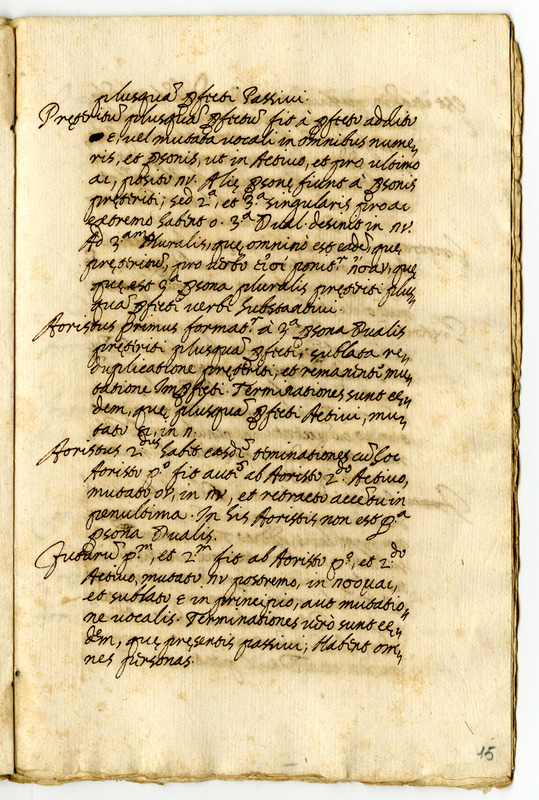 plusquã pfecti Passivi.
Pręteritũ plusquã pfectũ fit à pfecto addito
ε, vel mutata vocali in omnibus nume„
ris, et psonis, ut in Activo, et pro ultimo
αι, posito ην. Alię psonę fiunt à psonis
pręteriti; sed 2.ª, et 3.ª singularis pro αι
extremo habent ο. 3.ª Dual. desinit in ην.
Ad 3.am Pluralis, quę omnino est eadẽ, quę
pręteriti, pro verbo εἰσί ponitr ἦσαν, quę
quę est 3.ª psona pluralis pręteriti plus„
quã pfecti verbi substantivi.
Aoristus Primus formatr à 3.ª psona Dualis
pręteriti plusquã pfecti, sublata re„
duplicatione pręteriti, et remanente mu„
tatione Impfecti. Terminationes sunt eę„
dem, quę plusquã pfecti Activi, mu„
tato ει in η.
Aoristus 2.dus habet easdẽ tminationes cũ hoc
Aoristo pº fit autẽ ab Aoristo 2.do Activo,
mutato ον, in ην, et retracto accẽtu in
penultima. In his Aoristis non est pª
psona Dualis.
Futurũ p.m, et 2.m fit ab Aoristo pº, et 2.do
Activo, mutato ην postremo, in ησομαι,
et sublato ε in principio, aut mutatio„
ne vocalis. Terminationes verò sunt eę„
dẽm, quę pręsentis passivi; Habent om„
nes personas.
15